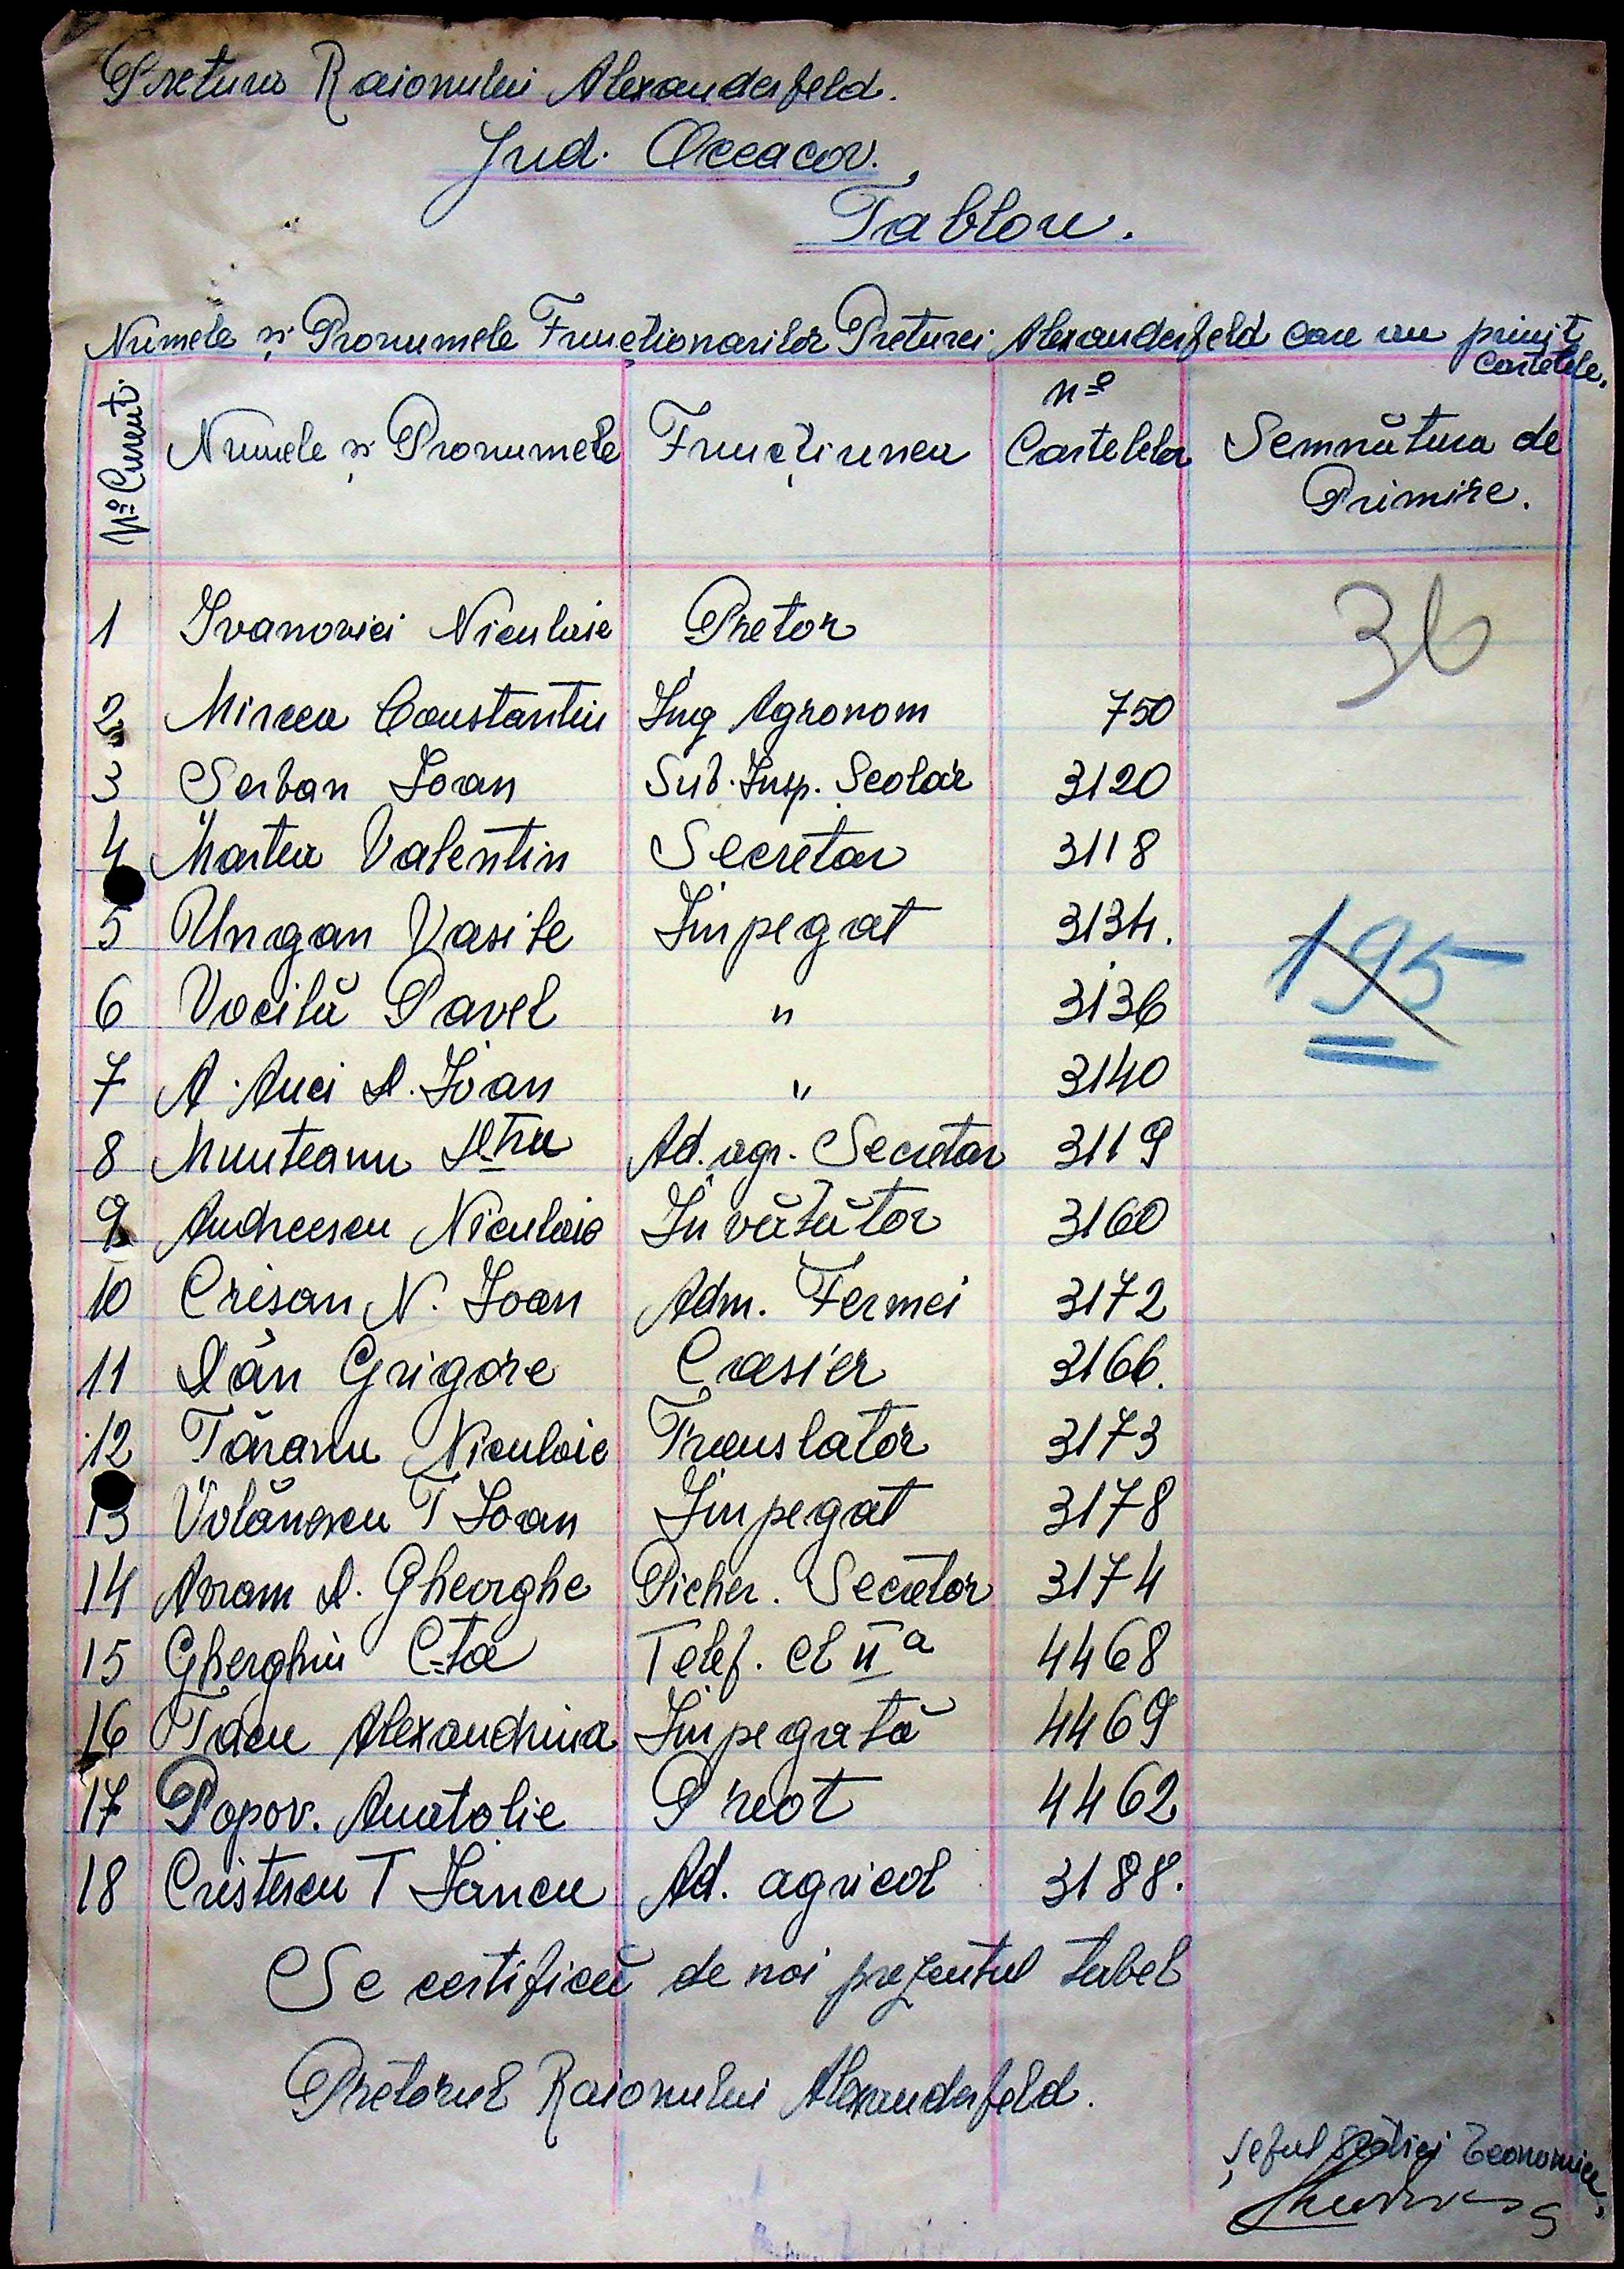 Pretura Raionului Alexanderfeld.
Jud. Oceacov.
Tablou.
Numele și Pronumele Funcționarilor Preturei Alexanderfeld care au primit
Cartelele.
Nº Curent. Numele și Pronumele Funcțiunea nº Cartelelor Semnătura de Primire.
1 Ivanovici Niculaie Pretor
36
2 Mircea Constantin Ing Agronom 750
3 Serban Ioan Sub. Insp. Scolar 3120
4 Martea Valentin Secretar 3118
5 Ungan Vasile Impegat 3134.
195
6 Vocilă Pavel " 3136
7 A. Anei D. Ioan " 3140
8 Munteanu Dtru Ad. agr. Secretar 3119
9 Andreescu Niculaie Invățător 3160
10 Crisan N. Ioan Adm. Fermei 3172
11 Dán Grigore Casier 3166.
12 Tăranu Niculaie Translator 3173
13 Volănescu T Ioan Impegat 3178
14 Avram D. Gheorghe Picher. Secretor 3174
15 Gherghiu C-ta Telef. cl II a 4468
16 Tacu Alexandrina Impegată 4469
17 Popov. Anatolie Preot 4462
18 Cristescu T Iancu Ad. agricol 3188.
Se certifică de noi prezentul tabel
Pretorul Raionului Alexanderfeld.
Șeful Secției Economice,